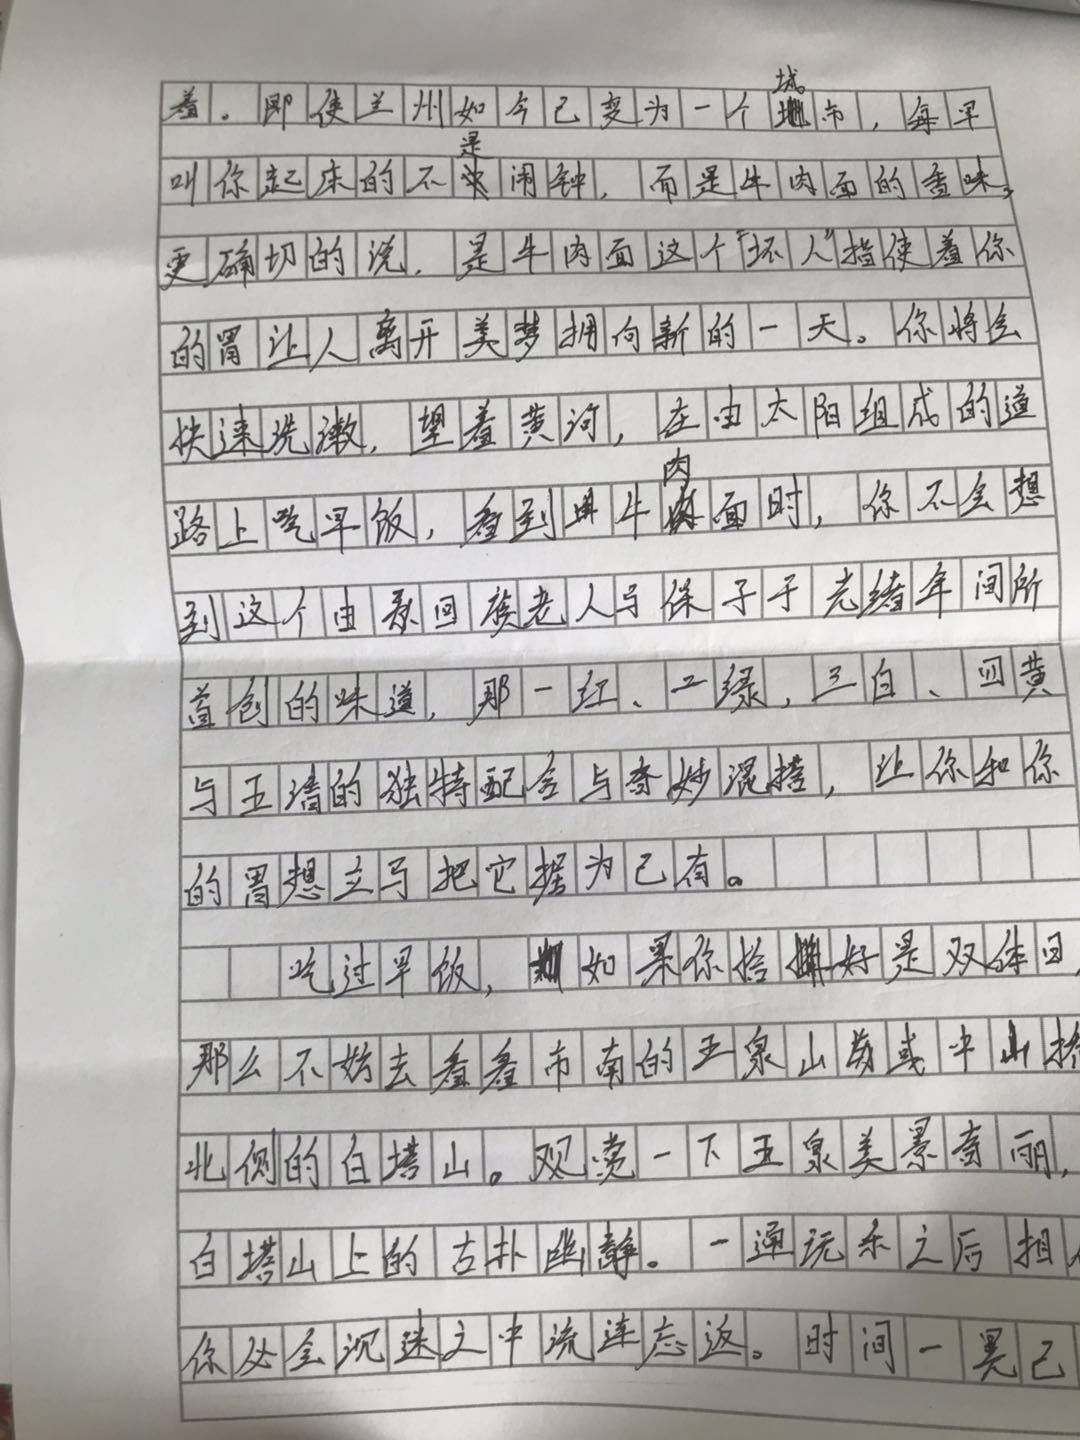 着。即使兰州如今已变为一个城市，每早
叫你起床的不是闹钟，而是牛肉面的香味，
更确切的说，是牛肉面这个“坏人”指使着你
的胃让人离开美梦拥向新的一天。你将会
快速洗漱，望着黄河，在由太阳组成的道
路上吃早饭，看到牛肉面时，你不会想
到这个由回族老人马保子于光绪年间所
首创的味道，那一红、二绿，三白、四黄
与五清的独特配合与奇妙混搭，让你和你
的胃想立马把它据为己有。
吃过早饭，如果你恰好是双休日，
那么不妨去看看市南的五泉山或中山桥
北侧的白塔山。观赏一下五泉美景奇丽，
白塔山上的古朴幽静。一通玩乐之后相
你必会沉迷之中流连忘返。时间一晃已